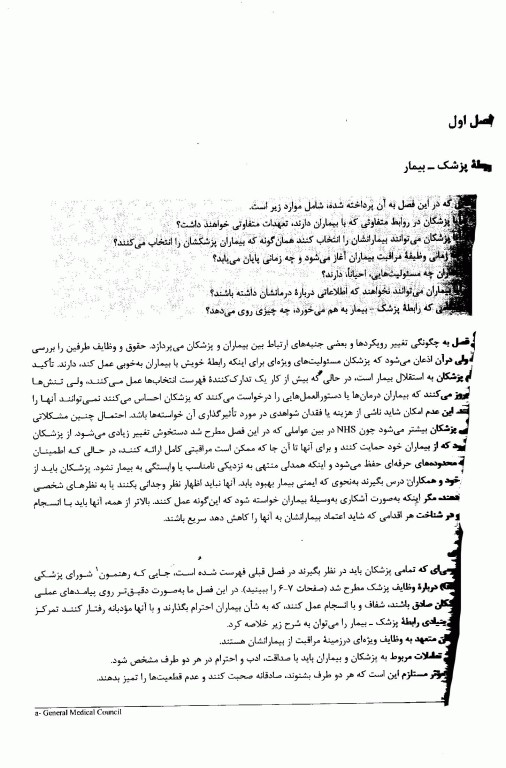 فصل اول
رابطهٔ پزشک ــ بیمار
که در این فصل به آن پرداخته شده، شامل موارد زیر است.
پزشکان در روابط متفاوتی که با بیماران دارند، تعهدات متفاوتی خواهند داشت؟
پزشکان می‌توانند بیمارانشان را انتخاب کنند همان‌گونه که بیماران پزشکشان را انتخاب می‌کنند؟
زمانی وظیفهٔ مراقبت بیماران آغاز می‌شود و چه زمانی پایان می‌یابد؟
چه مسئولیت‌هایی، احیاناً، دارند؟
بیماران می‌توانند نخواهند که اطلاعاتی دربارهٔ درمانشان داشته باشند؟
که رابطهٔ پزشک - بیمار به هم می‌خورد، چه چیزی روی می‌دهد؟
فصل به چگونگی تغییر رویکردها و بعضی جنبه‌های ارتباط بین بیماران و پزشکان می‌پردازد. حقوق و وظایف طرفین را بررسی
ولی درآن اذعان می‌شود که پزشکان مسئولیت‌های ویژه‌ای برای اینکه رابطهٔ خویش با بیماران به‌خوبی عمل کند، دارند. تأکید
پزشکان به استقلال بیمار است، در حالی که بیش از کار یک تدارک‌کنندهٔ فهرست انتخاب‌ها عمل می‌کنند، ولی تنش‌ها
بروز می‌کنند که بیماران درمان‌ها یا دستورالعمل‌هایی را درخواست می‌کنند که پزشکان احساس می‌کنند نمی‌توانند آنها را
این عدم امکان شاید ناشی از هزینه یا فقدان شواهدی در مورد تأثیرگذاری آن خواسته‌ها باشد. احتمال چنین مشکلاتی
پزشکان بیشتر می‌شود چون NHS در بین عواملی که در این فصل مطرح شد دستخوش تغییر زیادی می‌شود. از پزشکان
که از بیماران خود حمایت کنند و برای آنها تا آن جا که ممکن است مراقبتی کامل ارائه کنند، در حالی که اطمینان
محدوده‌های حرفه‌ای حفظ می‌شود و اینکه همدلی منتهی به نزدیکی نامناسب یا وابستگی به بیمار نشود. پزشکان باید از
خود و همکاران درس بگیرند به‌نحوی که ایمنی بیمار بهبود یابد. آنها نباید اظهار نظر وجدانی بکنند یا به نظرهای شخصی
مگر اینکه به‌صورت آشکاری به‌وسیلهٔ بیماران خواسته شود که این‌گونه عمل کنند. بالاتر از همه، آنها باید با انسجام
در شناخت هر اقدامی که شاید اعتماد بیمارانشان به آنها را کاهش دهد سریع باشند.
که تمامی پزشکان باید در نظر بگیرند در فصل قبلی فهرست شده است، جایی که رهنمون شورای پزشکی
دربارهٔ وظایف پزشک مطرح شد (صفحات ۷–۶ را ببینید). در این فصل ما به‌صورت دقیق‌تر روی پیامدهای عملی
صادق باشند، شفاف و با انسجام عمل کنند، که به شأن بیماران احترام بگذارند و با آنها مؤدبانه رفتار کنند تمرکز
بنیادی رابطهٔ پزشک ــ بیمار را می‌توان به شرح زیر خلاصه کرد.
متعهد به وظایف ویژه‌ای درزمینهٔ مراقبت از بیمارانشان هستند.
تعاملات مربوط به پزشکان و بیماران باید با صداقت، ادب و احترام در هر دو طرف مشخص شود.
مؤثر مستلزم این است که هر دو طرف بشنوند، صادقانه صحبت کنند و عدم قطعیت‌ها را تمیز بدهند.
a- General Medical Council